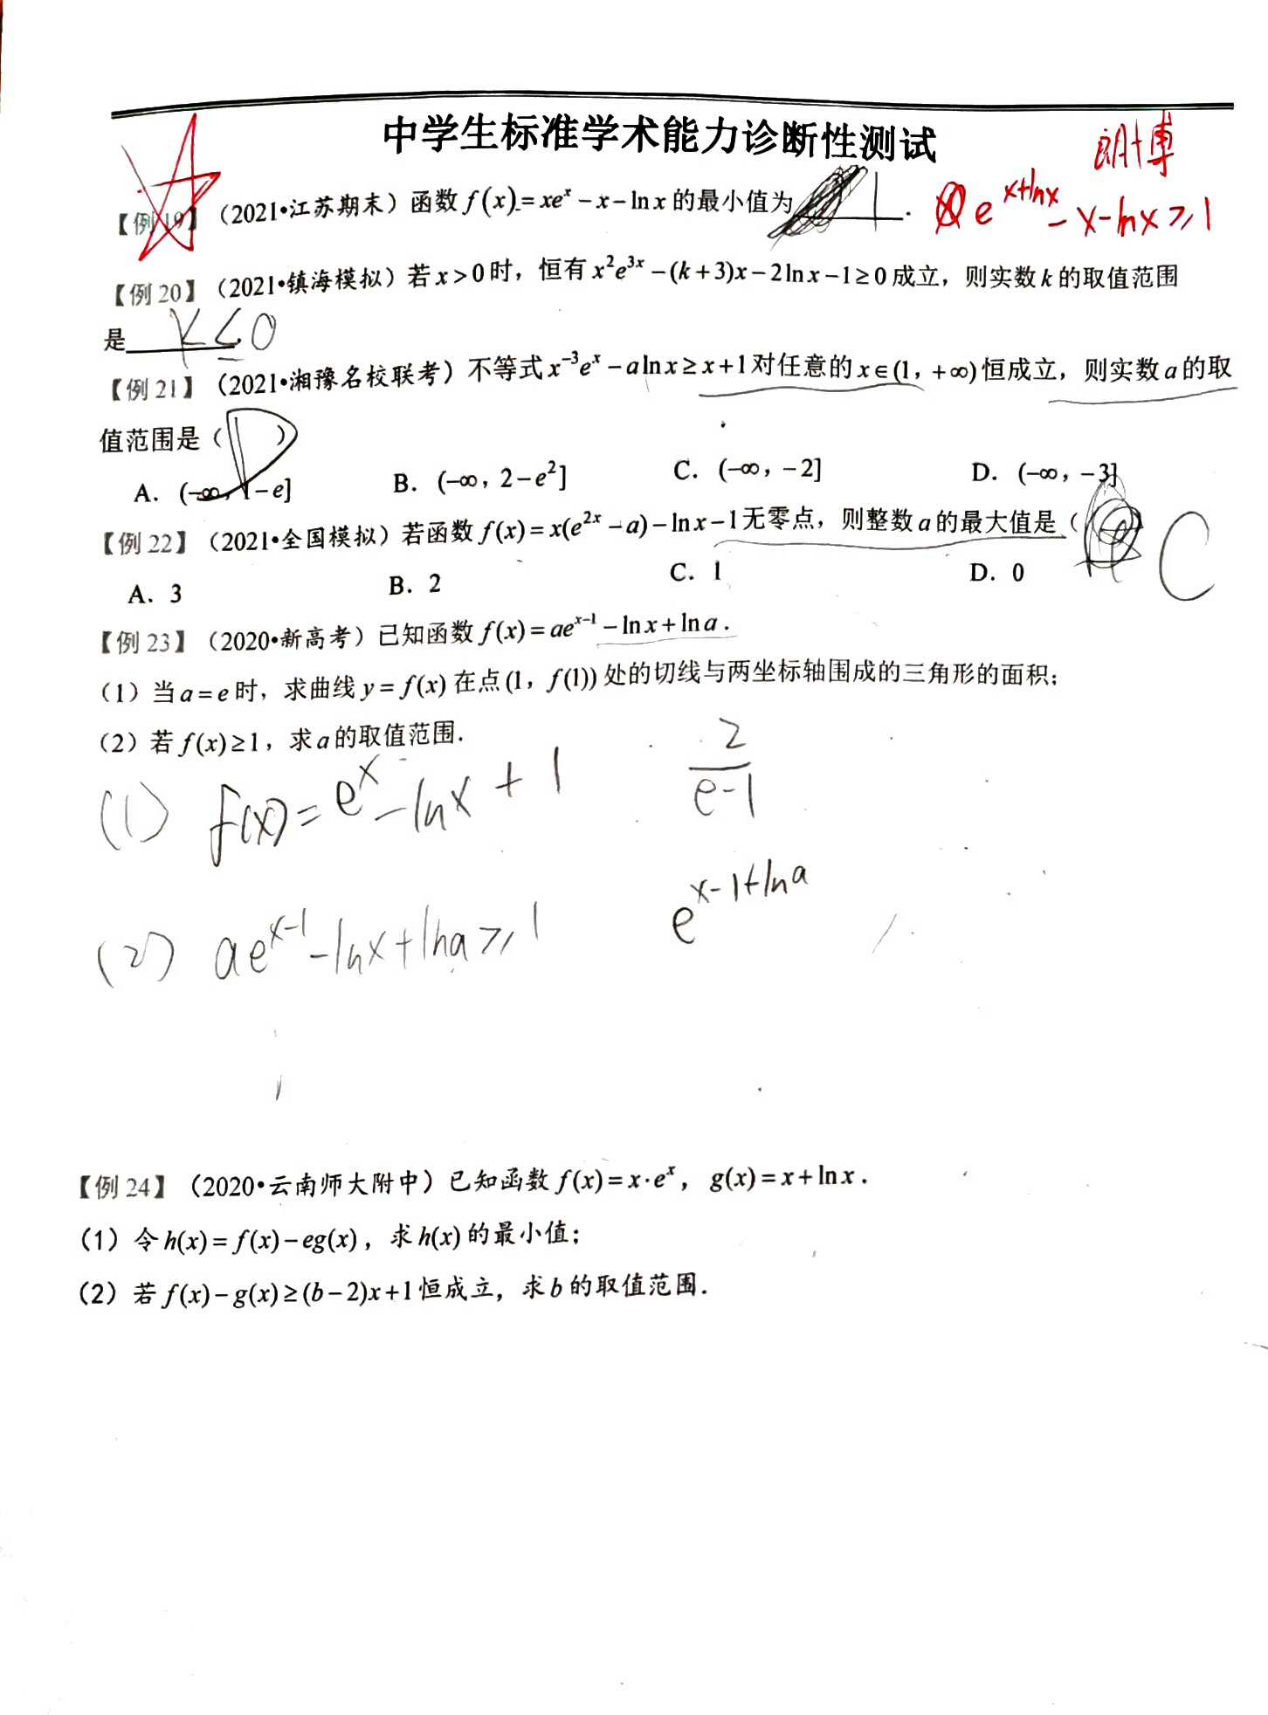 中学生标准学术能力诊断性测试
朗十博
【例19】（2021•江苏期末）函数 f(x)=xeˣ−x−lnx 的最小值为 1 .
e^(x+lnx) −x−lnx≥1
【例20】（2021•镇海模拟）若 x>0 时，恒有 x²e³ˣ−(k+3)x−2lnx−1≥0 成立，则实数 k 的取值范围
是 K≤0
【例21】（2021•湘豫名校联考）不等式 x⁻³eˣ−alnx≥x+1 对任意的 x∈(1，+∞) 恒成立，则实数 a 的取
值范围是（D）
A．(−∞，1−e] B．(−∞，2−e²] C．(−∞，−2] D．(−∞，−3]
【例22】（2021•全国模拟）若函数 f(x)=x(e²ˣ−a)−lnx−1 无零点，则整数 a 的最大值是（ C
A．3 B．2 C．1 D．0
【例23】（2020•新高考）已知函数 f(x)=aeˣ⁻¹−lnx+lna．
（1）当 a=e 时，求曲线 y=f(x) 在点 (1，f(1)) 处的切线与两坐标轴围成的三角形的面积；
（2）若 f(x)≥1，求 a 的取值范围．
(1) f(x)=eˣ−lnx+1 2/(e-1)
(2) aeˣ⁻¹−lnx+lna≥1 e^(x-1+lna)
【例24】（2020•云南师大附中）已知函数 f(x)=x·eˣ，g(x)=x+lnx．
（1）令 h(x)=f(x)−eg(x)，求 h(x) 的最小值；
（2）若 f(x)−g(x)≥(b−2)x+1 恒成立，求 b 的取值范围．